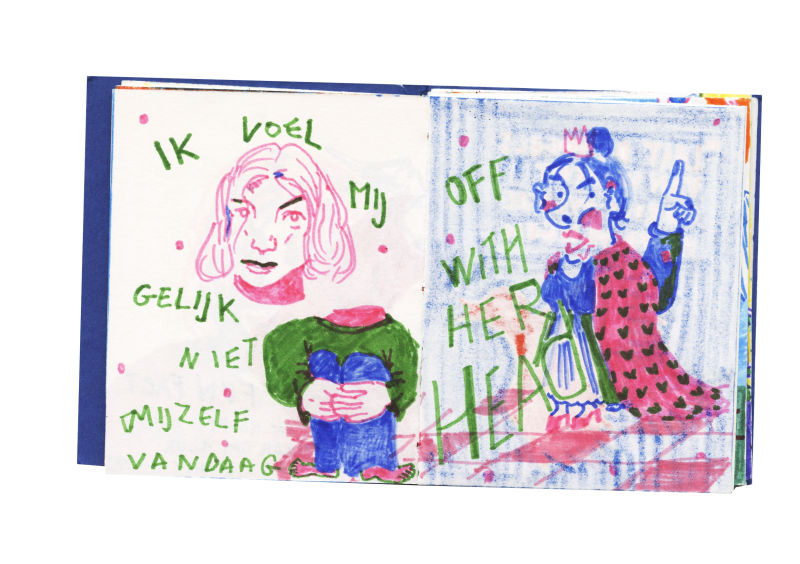 IK VOEL MIJ
GELIJK
NIET
MIJZELF
VANDAAG
OFF
WITH
HER
HEAD